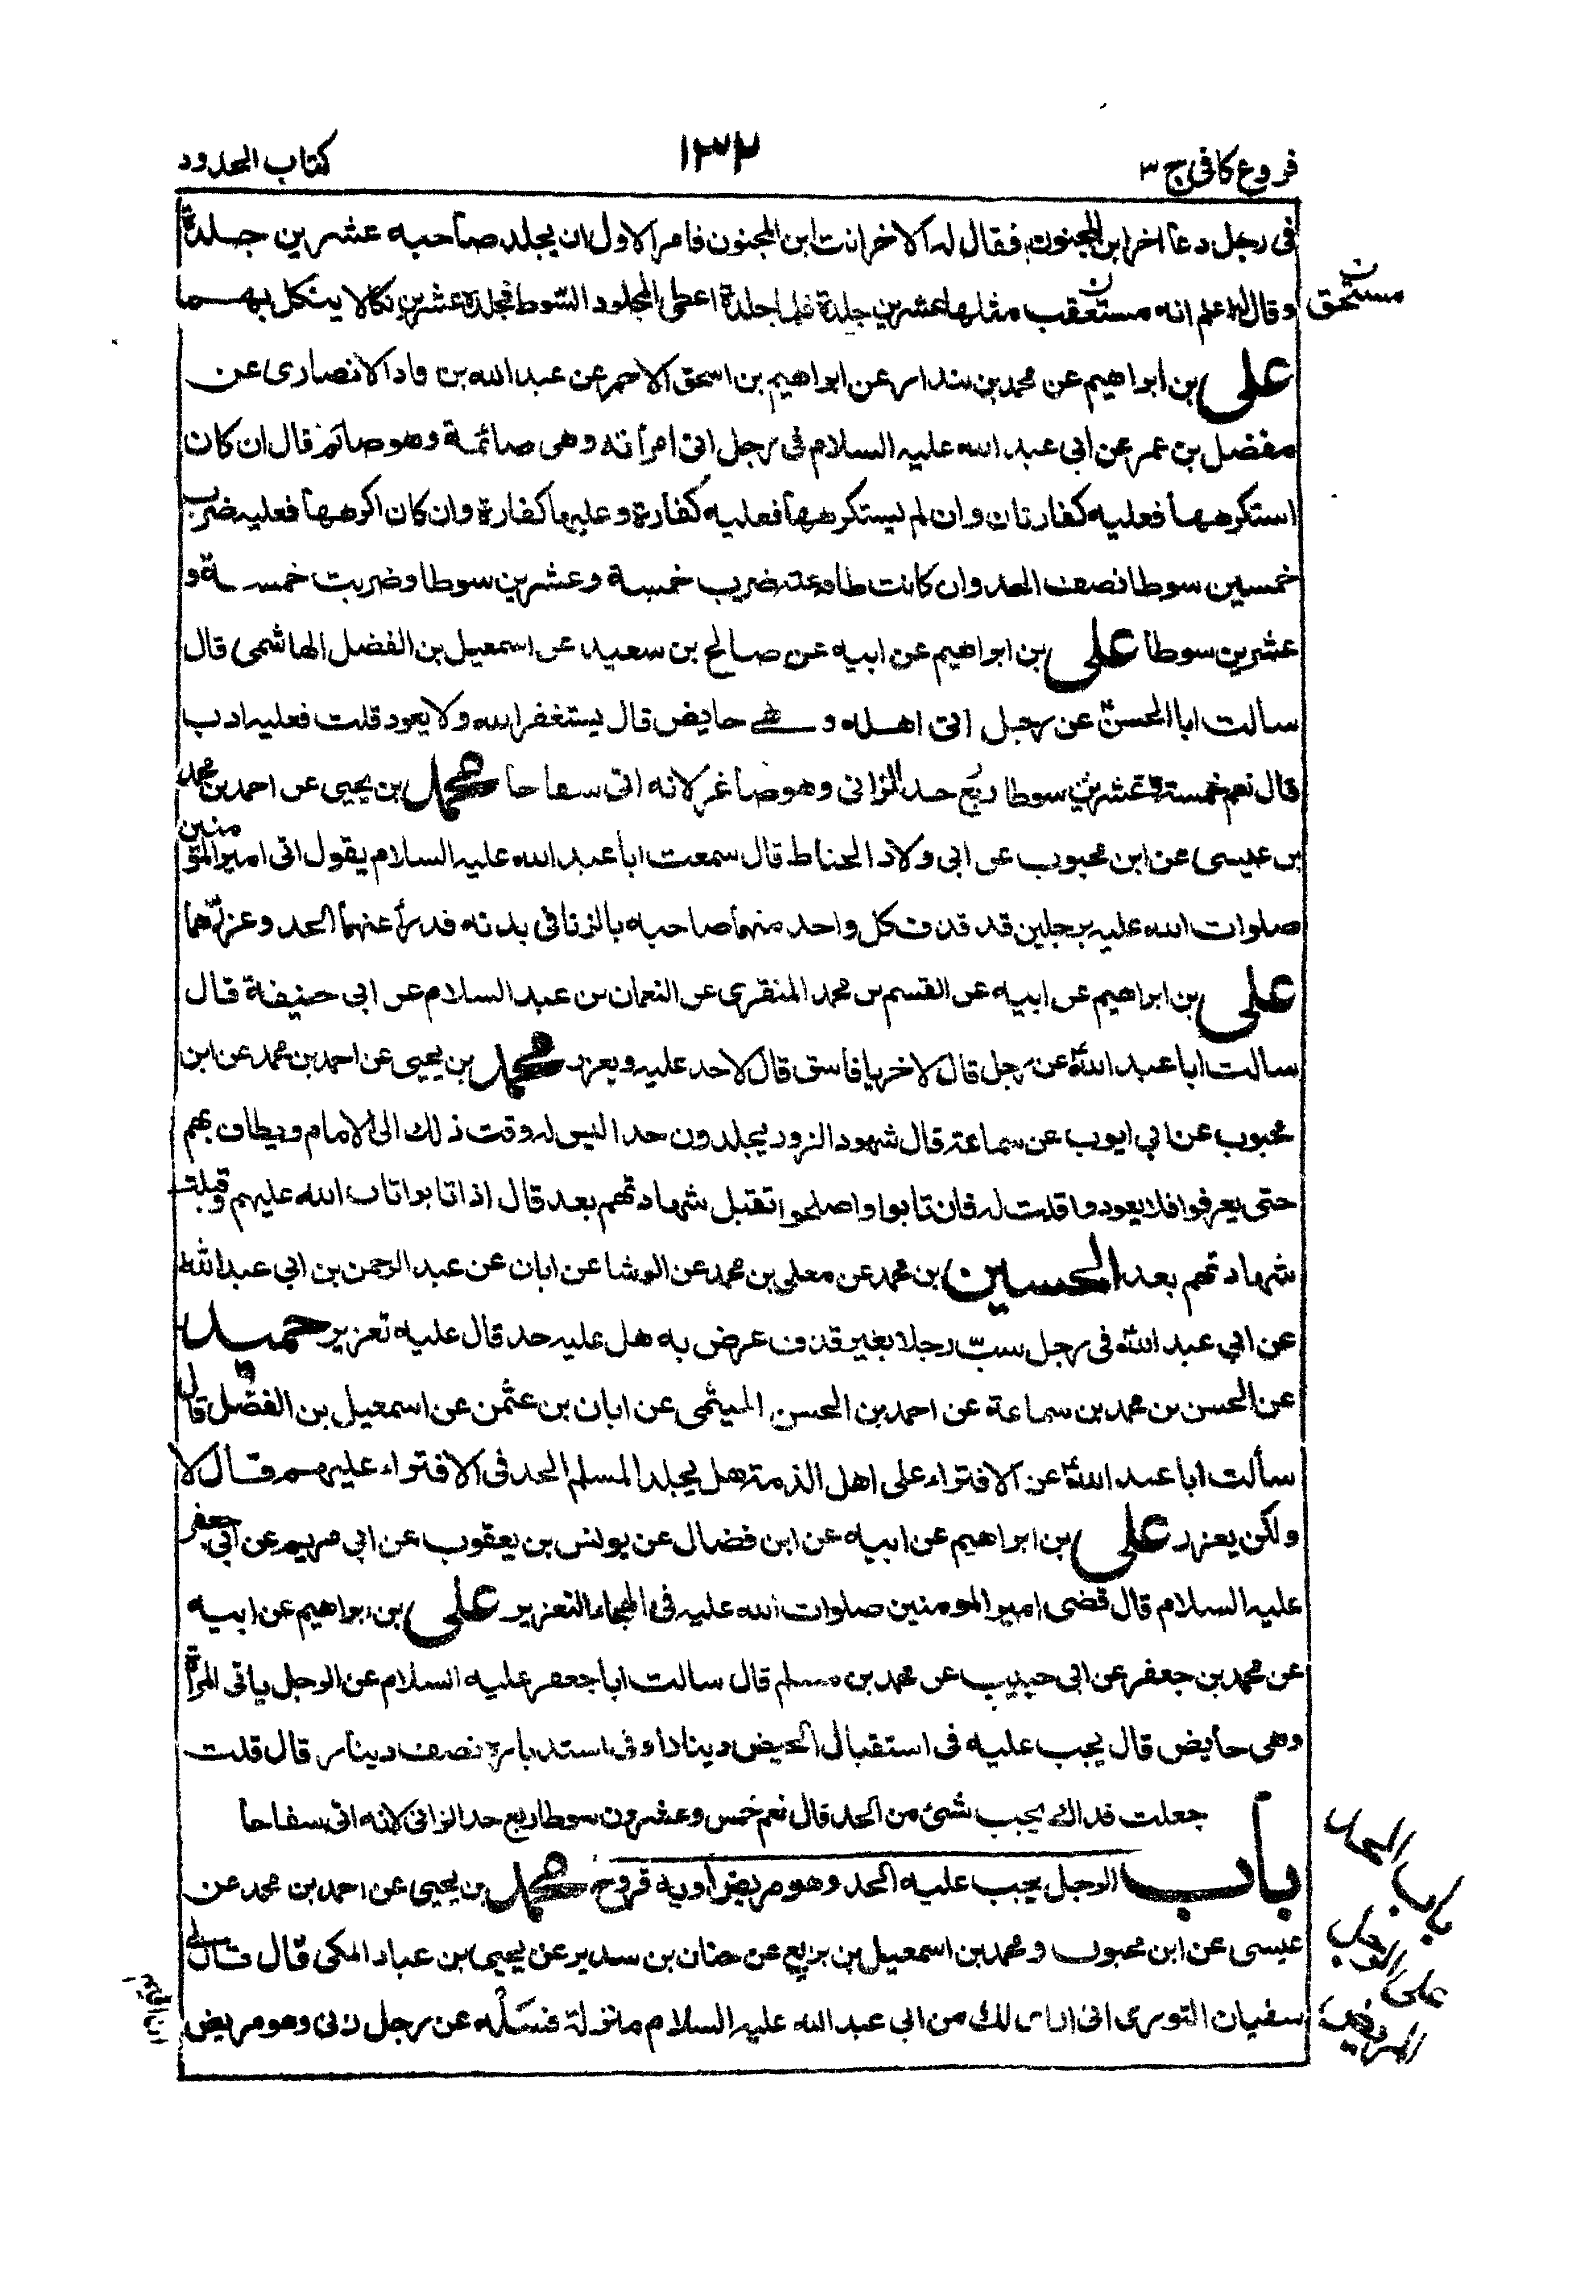 فروع كافى ج ٣
١٣٢
كتاب الحدود
فى رجل دعا اخر ابن المجنون فقال له الاخر انت ابن المجنون فامر الاول ان يجلد صاحبه عشرين جلدة
وقال له اعلم انه مستعقب مثلها عشرين جلدة فلما جلده اعطى المجلود السوط فجلده عشرين نكالا ينكل بهما
مستحق
على بن ابراهيم عن محمد بن بندار عن ابراهيم بن اسحق الاحمر عن عبد الله بن حماد الانصارى عن
مفضل بن عمر عن أبى عبد الله عليه السلام فى رجل اتى امرأته وهى صائمة وهو صائم قال ان كان
استكرهها فعليه كفارتان وان لم يستكرهها فعليه كفارة وعليها كفارة وان كان اكرهها فعليه ضرب
خمسين سوطا نصف الحد وان كانت طاوعته ضرب خمسة وعشرين سوطا وضربت خمسة و
عشرين سوطا على بن ابراهيم عن ابيه عن صالح بن سعيد عن اسمعيل بن الفضل الهاشمى قال
سألت ابا الحسن عن رجل أتى اهله وهى حايض قال يستغفر الله ولا يعود قلت فعليه ادب
قال نعم خمسة وعشرين سوطا ربع حد الزانى وهو صاغر لانه اتى سفاحا محمد بن يحيى عن احمد بن محمد
بن عيسى عن ابن محبوب عن ابى ولاد الحناط قال سمعت ابا عبد الله عليه السلام يقول اتى امير المؤمنين
صلوات الله عليه برجلين قد قذف كل واحد منهما صاحبه بالزنا فى بدنه فدرأ عنهما الحد وعزرهما
على بن ابراهيم عن ابيه عن القسم بن محمد المنقرى عن النعمان بن عبد السلام عن ابى حنيفة قال
سالت ابا عبد الله عن رجل قال لاخر يا فاسق قال لا حد عليه ويعزر محمد بن يحيى عن احمد بن محمد عن ابن
محبوب عن ابي ايوب عن سماعة قال شهود الزور يجلدون حدا ليس له وقت ذلك الى الامام ويطاف بهم
حتى يعرفوا فلا يعودوا قلت له فان تابوا واصلحوا تقبل شهادتهم بعد قال اذا تابوا تاب الله عليهم وقبلت
شهادتهم بعد الحسين بن محمد عن معلى بن محمد عن الوشا عن ابان عن عبد الرحمن بن ابي عبد الله
عن ابي عبد الله فى رجل سبّ رجلا بغير قذف عرض به هل عليه حد قال عليه تعزير حميد
عن الحسن بن محمد بن سماعة عن احمد بن الحسن الميثمى عن ابان بن عثمن عن اسمعيل بن الفضل قال
سألت ابا عبد الله عن الافتراء على اهل الذمة هل يجلد المسلم الحد فى الافتراء عليهم قال لا
ولكن يعزر على بن ابراهيم عن ابيه عن ابن فضال عن يونس بن يعقوب عن ابي مريم عن ابي جعفر
عليه السلام قال قضى امير المومنين صلوات الله عليه فى الهجاء التعزير على بن ابراهيم عن ابيه
عن محمد بن جعفر عن ابى حبيب عن محمد بن مسلم قال سالت ابا جعفر عليه السلام عن الرجل ياتى المرأة
وهى حايض قال يجب عليه فى استقبال الحيض دينار وفى استدباره نصف دينار قال قلت
جعلت فداك يجب شئ من الحد قال نعم خمس وعشرون سوطا ربع حد الزانى لانه اتى سفاحا
باب الرجل يجب عليه الحد وهو مريض أو به قروح محمد بن يحيى عن احمد بن محمد عن
عيسى عن ابن محبوب و محمد بن اسمعيل بن بزيع عن حنان بن سدير عن يحيى بن عباد المكى قال قال لى
سفيان الثورى انى ارى لك من ابى عبد الله عليه السلام منزلة فسله عن رجل زنى وهو مريض
باب الحد
على الرجل
المريض